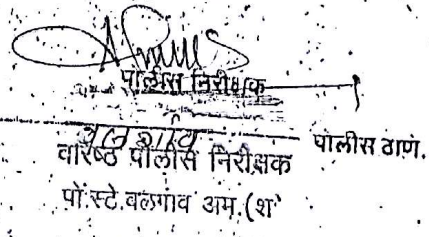 पोलीस निरीक्षक
वलगाव पोलीस ठाणे.
वरिष्ठ पोलीस निरीक्षक
पो.स्टे.वलगाव अम.(श